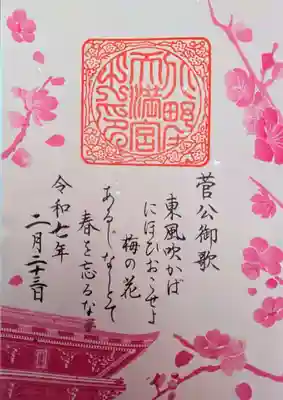 北野
天満宮
菅公御歌
東風吹かば
にほひおこせよ
梅の花
あるじなしとて
春を忘るな
令和七年
二月二十三日